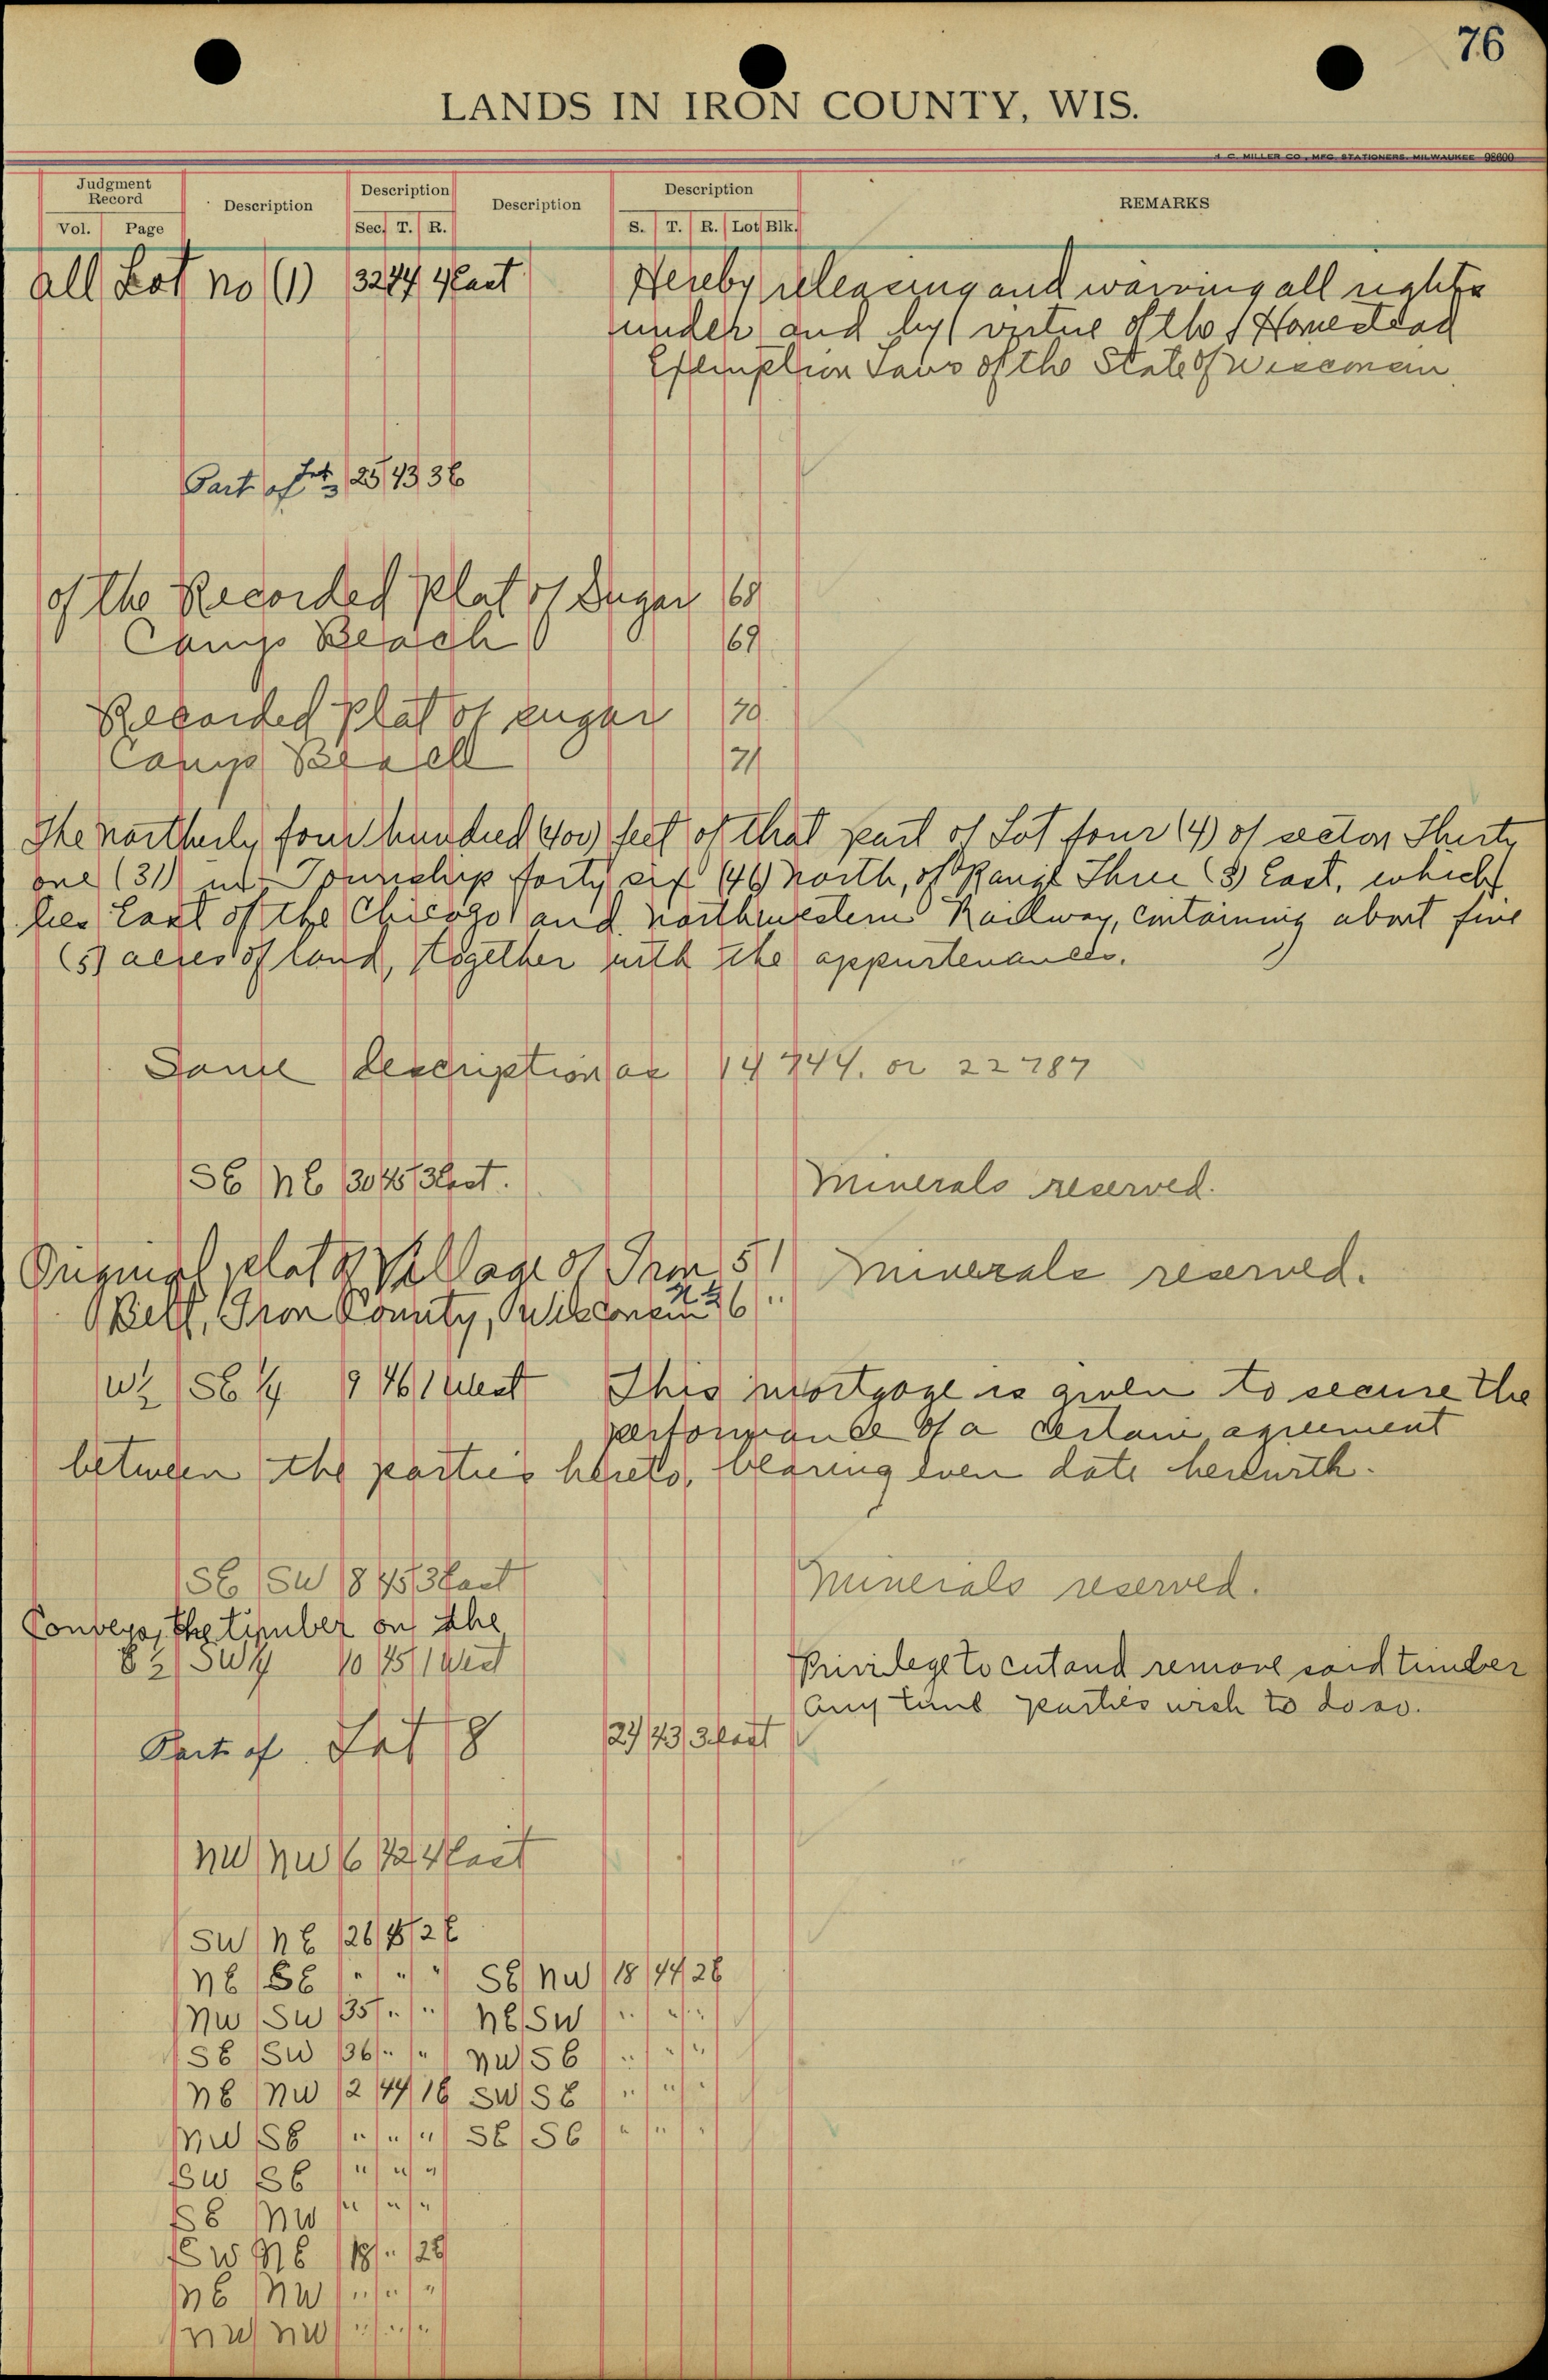 76
LANDS IN IRON COUNTY, WIS.
C. MILLER CO., MFG. STATIONERS, MILWAUKEE 98600
Judgment Record
Vol. Page
Description
Description
Sec. T. R.
Description
Description
S. T. R. Lot Blk.
REMARKS
All Lot no (1) 32 44 4 East Hereby releasing and waiving all rights
under and by virtue of the Homestead
Exemption Laws of the State of Wisconsin
Part of Lot 3 25 43 3E
of the Recorded Plat of Sugar 68
Camp Beach 69
Recorded Plat of Sugar 70
Camp Beach 71
The northerly four hundred (400) feet of that part of Lot four (4) of section Thirty
one (31) in Township forty six (46) North, of Range Three (3) East, which
lies East of the Chicago and Northwestern Railway, containing about five
(5) acres of land, together with the appurtenances.
Same description as 14 744. or 22787
SE NE 30 45 3 East. Minerals reserved.
Original plat of Village of Iron 5 1 Minerals reserved.
Belt, Iron County, Wisconsin N½ 6 "
W½ SE ¼ 9 46 1 West This mortgage is given to secure the
performance of a certain agreement
between the parties hereto, bearing even date herewith.
SE SW 18 45 3 East Minerals reserved.
Conveys, the timber on the
E½ SW¼ 10 45 1 West Privilege to cut and remove said timber
any time parties wish to do so.
Part of Lot 8 24 43 3 East
NW NW 6 42 4 East
SW NE 26 45 2E
NE SE " " " SE NW 18 44 2E
NW SW 35 " " NE SW " " "
SE SW 36 " " NW SE " " "
NE NW 12 44 1E SW SE " " "
NW SE " " " SE SE " " "
SW SE " " "
SE NW " " "
SW NE 18 " 2E
NE NW " " "
NW NW " " "